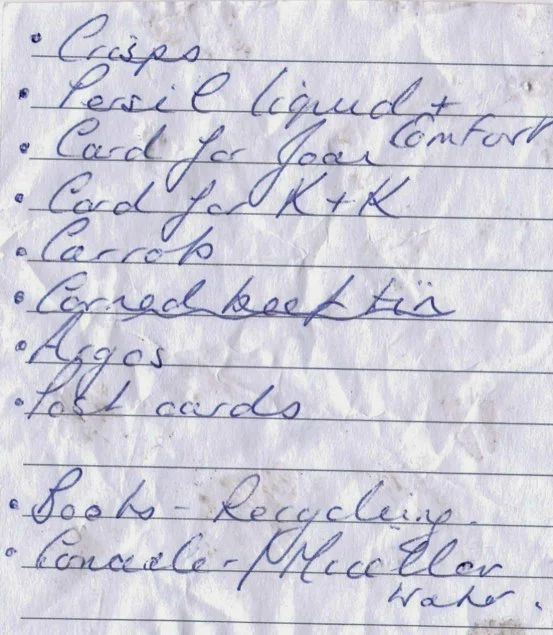 • Crisps
• Persil liquid +
Comfort
• Card for Joan
• Card for K + K
• Carrots
• Corned beef tin
• Argos
• Post cards
• Books - Recycling.
• - Micellar
Water.